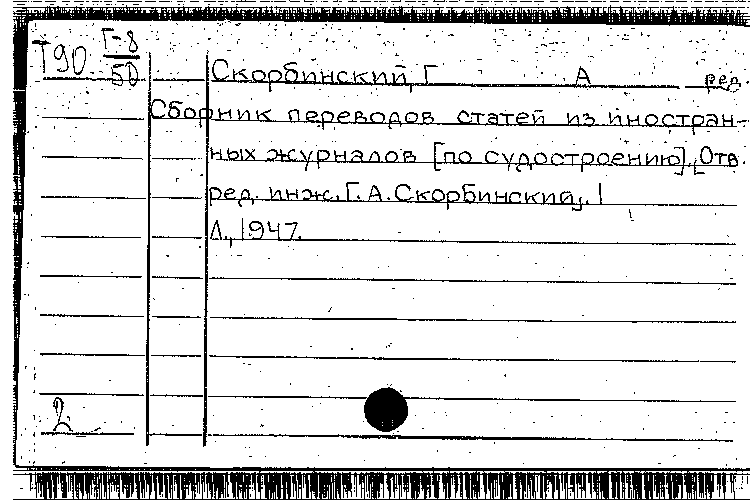 Т90 Г-8
50
Скорбинский, Г А ред.
Сборник переводов статей из иностран-
ных журналов [по судостроению]. [Отв.
ред. инж. Г. А. Скорбинский]. 1
Л., 1947.
2